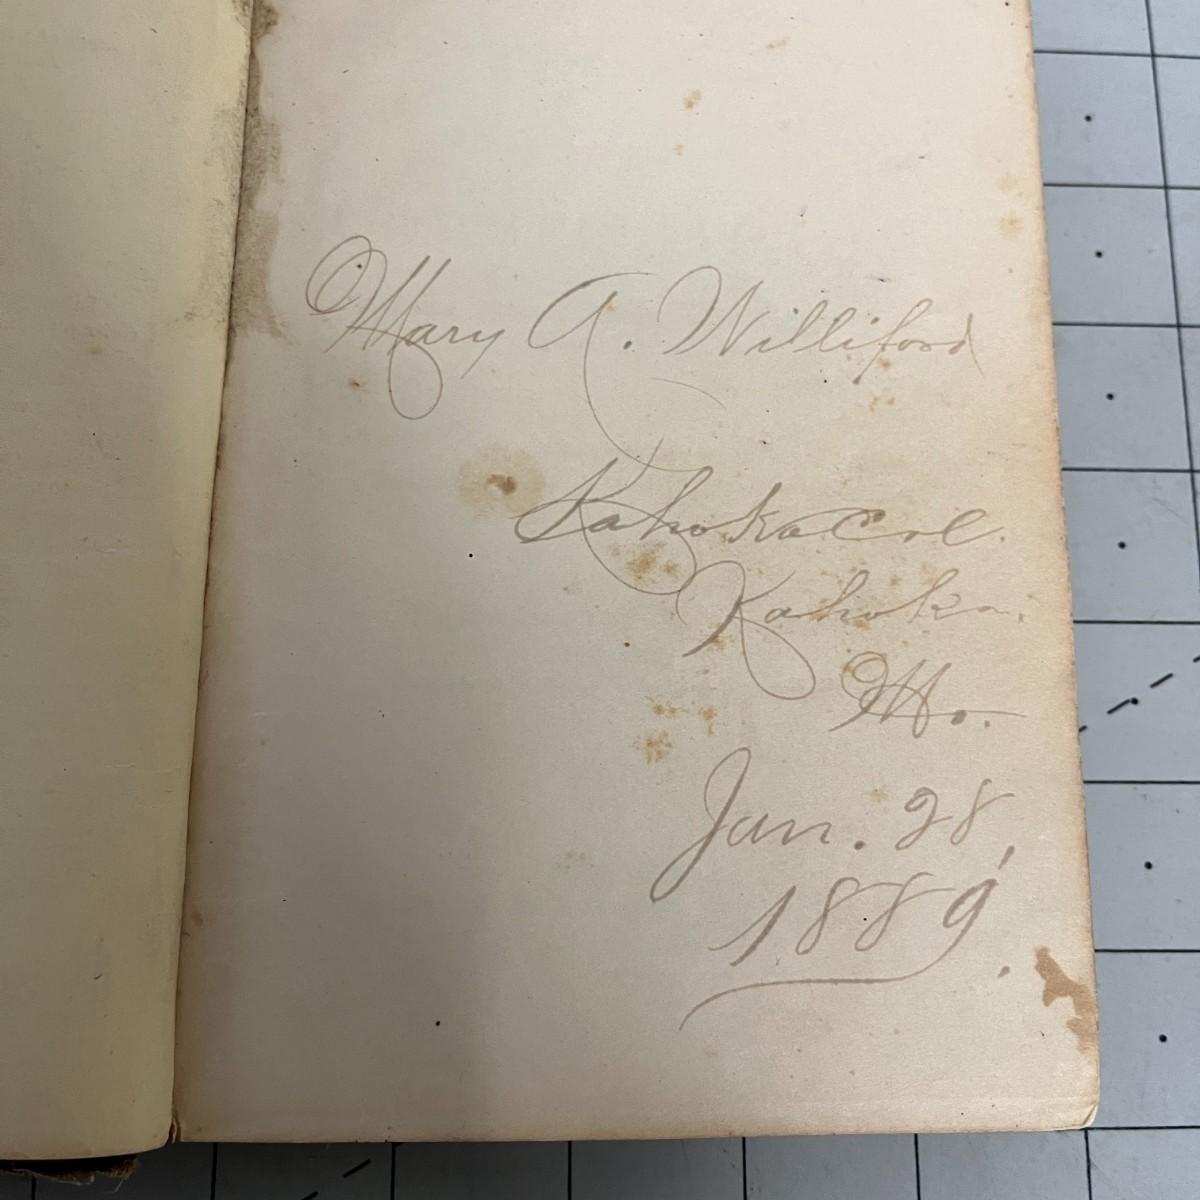 Mary A. Williford
Kahoka Col.
Kahoka,
Mo.
Jan. 28,
1889.